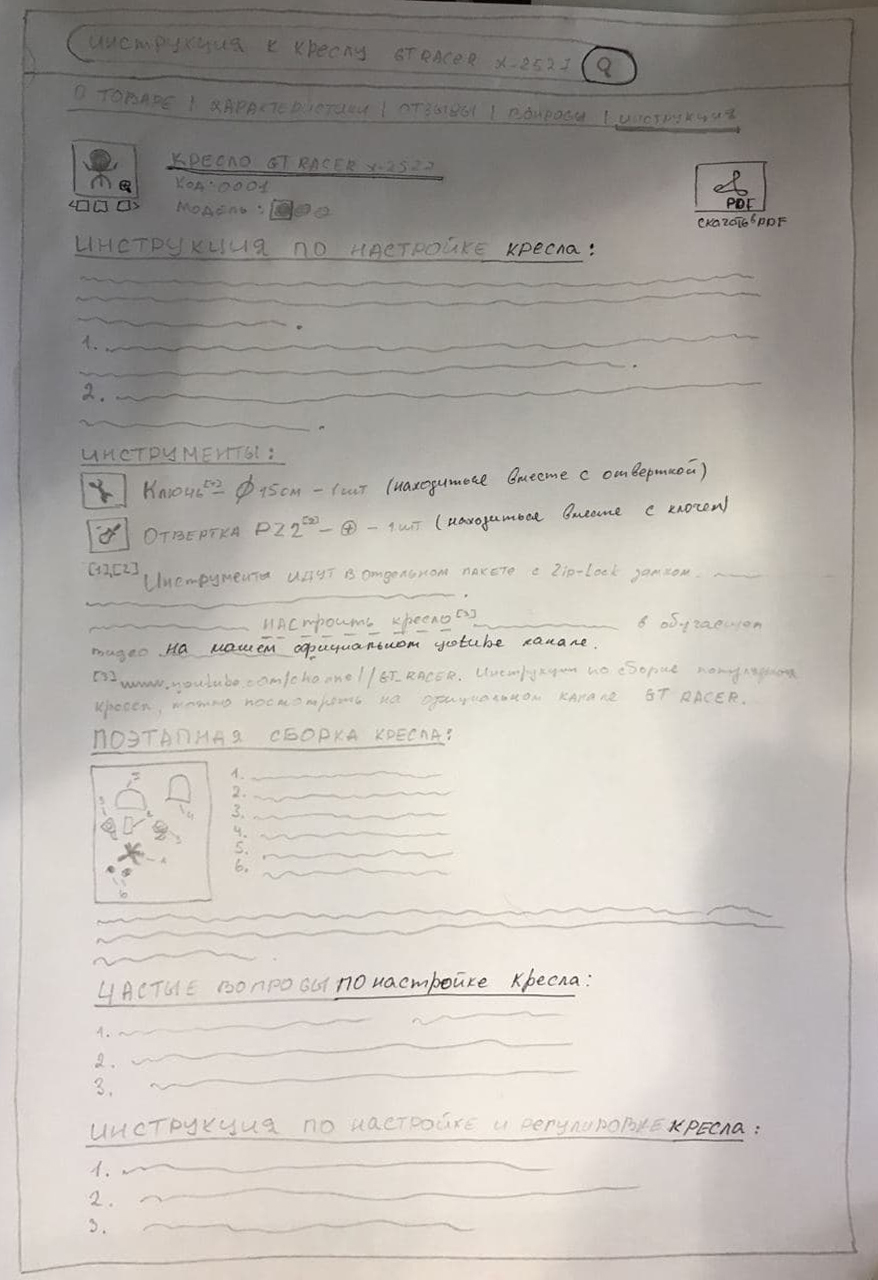 ИНСТРУКЦИЯ К КРЕСЛУ GT RACER X-2527
О ТОВАРЕ | ХАРАКТЕРИСТИКИ | ОТЗЫВЫ | ВОПРОСЫ | ИНСТРУКЦИЯ
КРЕСЛО GT RACER X-2527
КОД: 0001
МОДЕЛЬ:
PDF
СКАЧАТЬ В PDF
ИНСТРУКЦИЯ ПО НАСТРОЙКЕ КРЕСЛА:
1.
2.
ИНСТРУМЕНТЫ:
Ключ [1] – Ø 15см – 1шт (находиться вместе с отверткой)
ОТВЕРТКА PZ2 [2] – ⊕ – 1шт (находиться вместе с ключем)
[1],[2] Инструменты идут в отдельном пакете с Zip-Lock замком.
НАСТРОИТЬ КРЕСЛО [3] в обучающем
видео на нашем официальном youtube канале.
[3] www.youtube.com/channel/GT_RACER. Инструкции по сборке популярных
кресел, можно посмотреть на официальном канале GT RACER.
ПОЭТАПНАЯ СБОРКА КРЕСЛА:
1.
2.
3.
4.
5.
6.
ЧАСТЫЕ ВОПРОСЫ ПО настройке Кресла:
1.
2.
3.
ИНСТРУКЦИЯ ПО НАСТРОЙКЕ И РЕГУЛИРОВКЕ КРЕСЛА:
1.
2.
3.